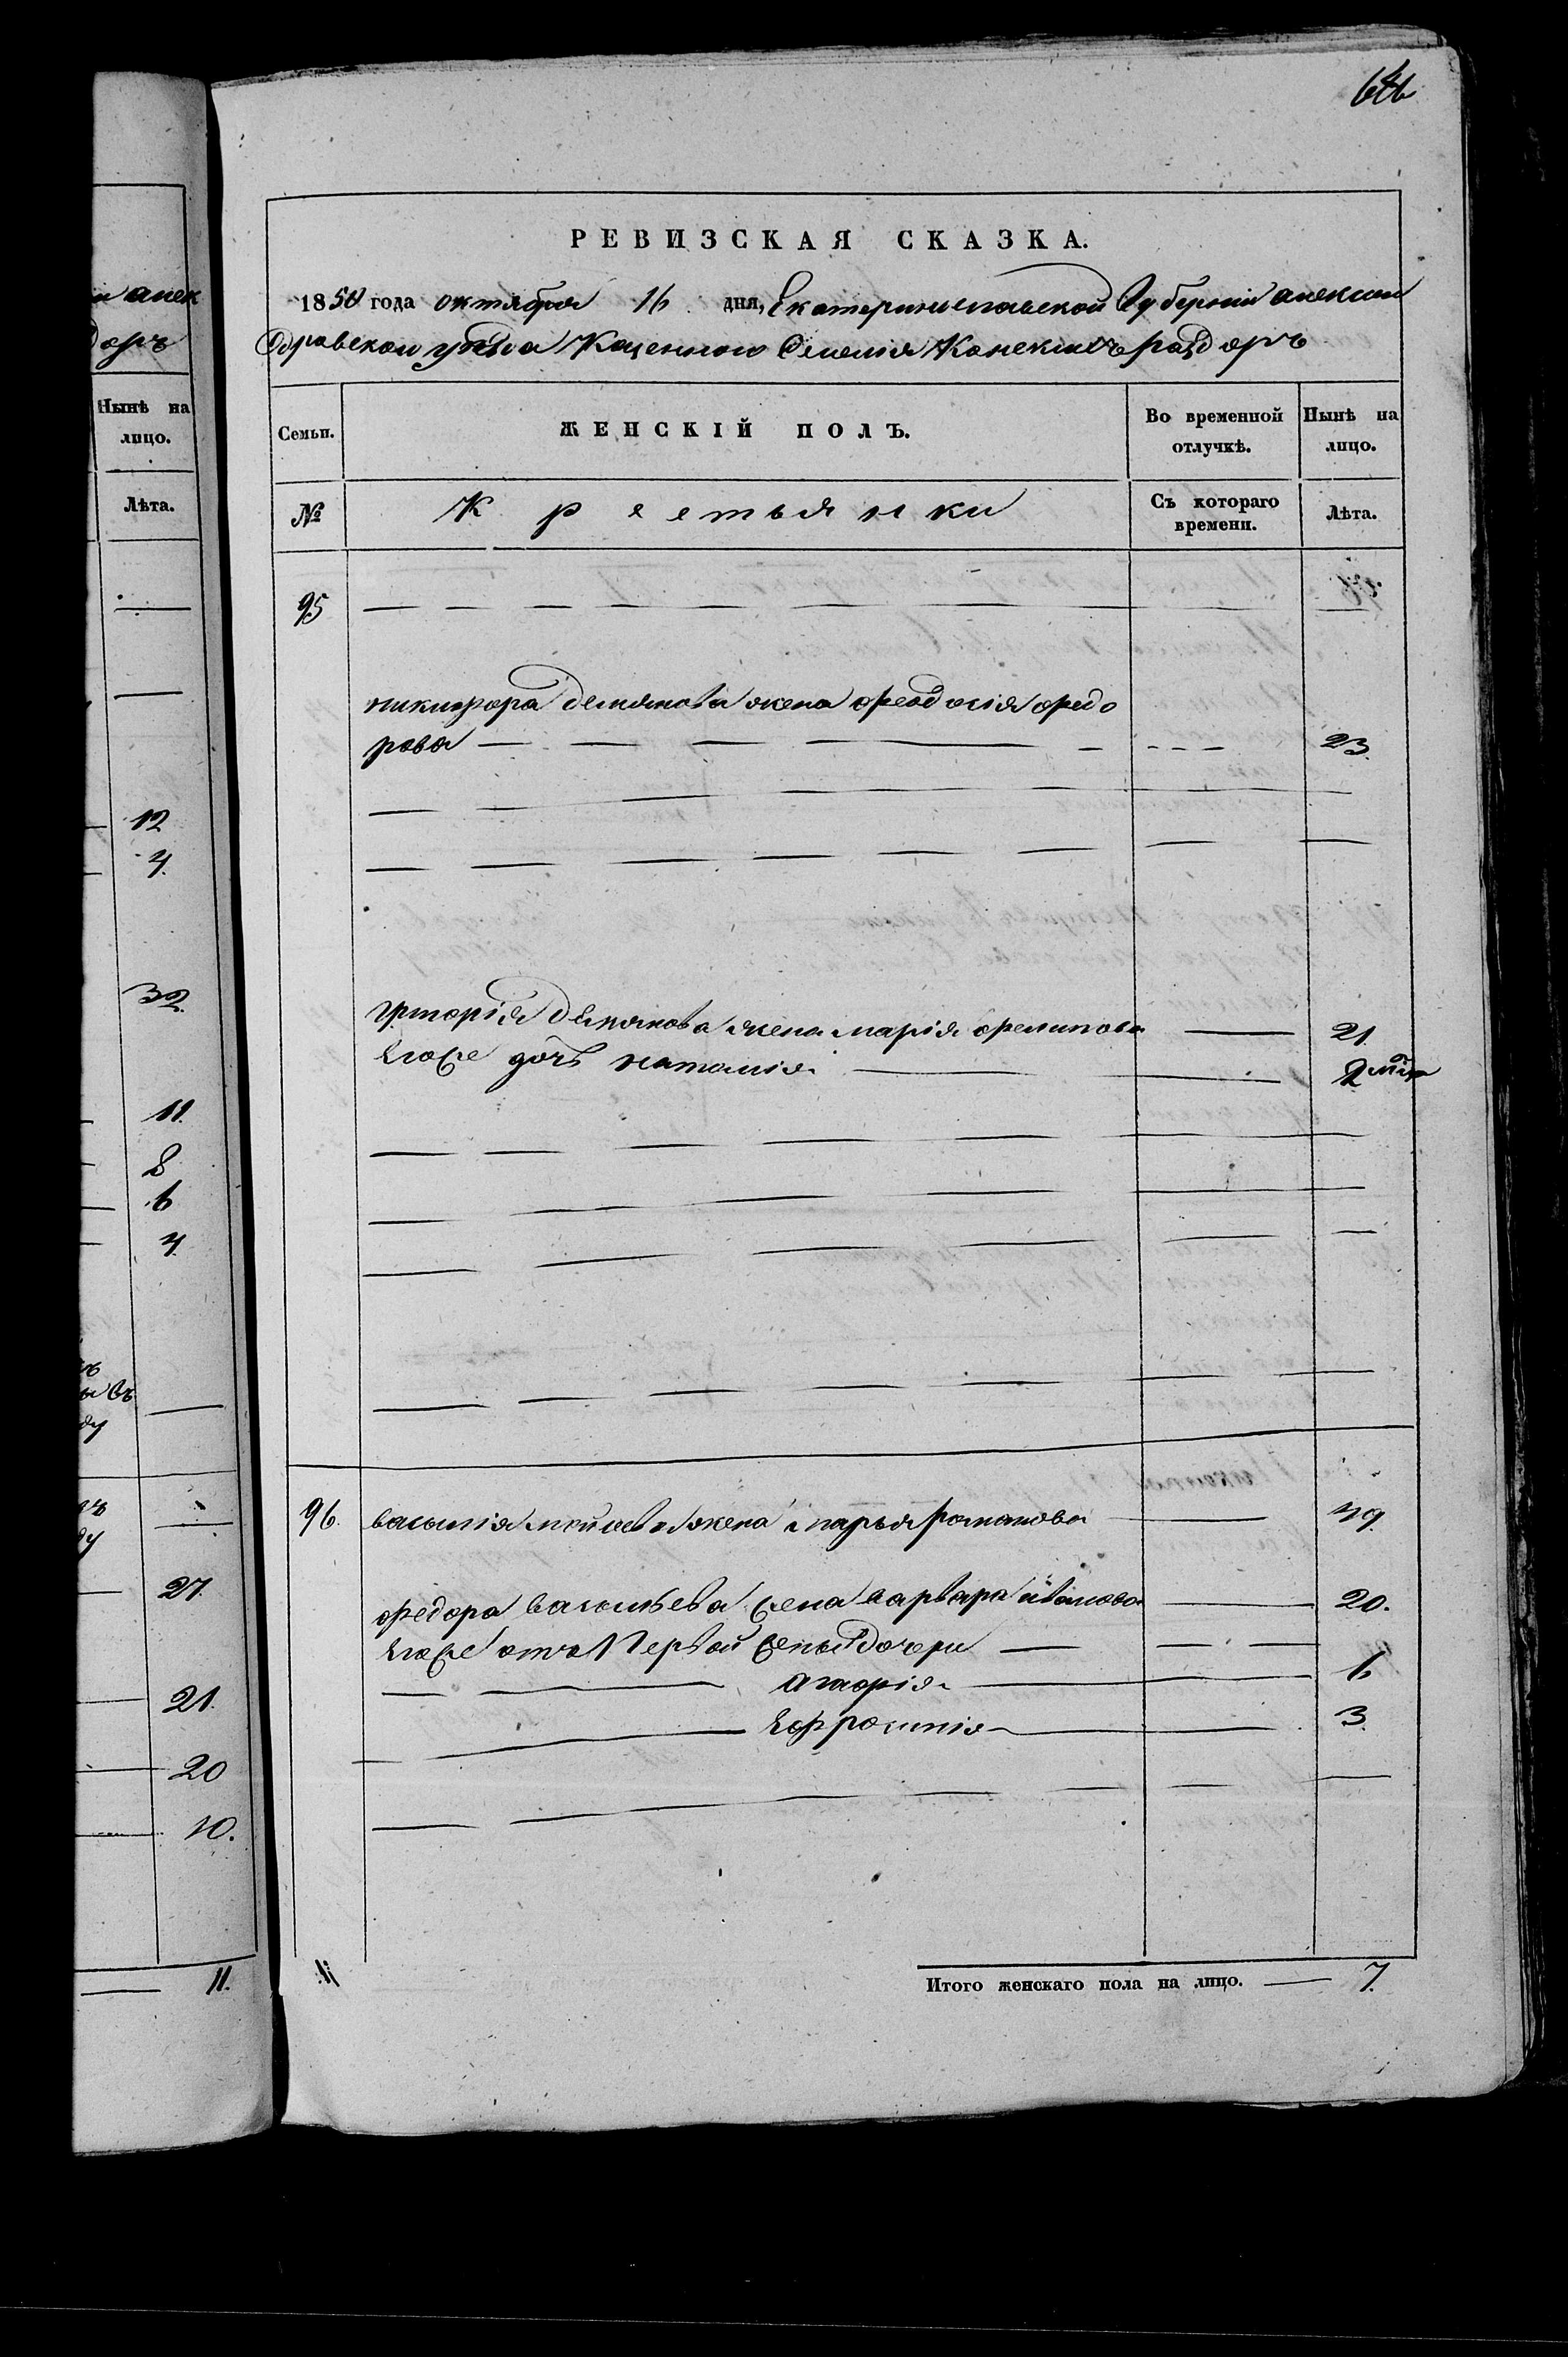 646
РЕВИЗСКАЯ СКАЗКА.
1850 года октября 16 дня, Екатеринославской Губернии Алексан
дровскаго уезда Казеннаго Селения Конскихъ раздоръ
Семьи. ЖЕНСКІЙ ПОЛЪ. Во временной отлучкѣ. Нынѣ на лицо.
№ Крестьянки Съ котораго времени. Лѣта.
95
никифора демянова жена феодосія федо
рова 23.
григорія демянова жена марія филипова 21.
Егоже дочь наталия 2 мѣ
96. василія мойсева жена марья романова 49.
федора васильева жена варвара иванова 20.
Егоже отъ Первой жены дочери
агафія 6
Ефросинія 3
Итого женскаго пола на лицо. 7.
и алек
доръ
Нынѣ на лицо.
Лѣта.
12
4.
32.
11.
8
6
4.
въ
ду
27.
21.
20
10.
11.